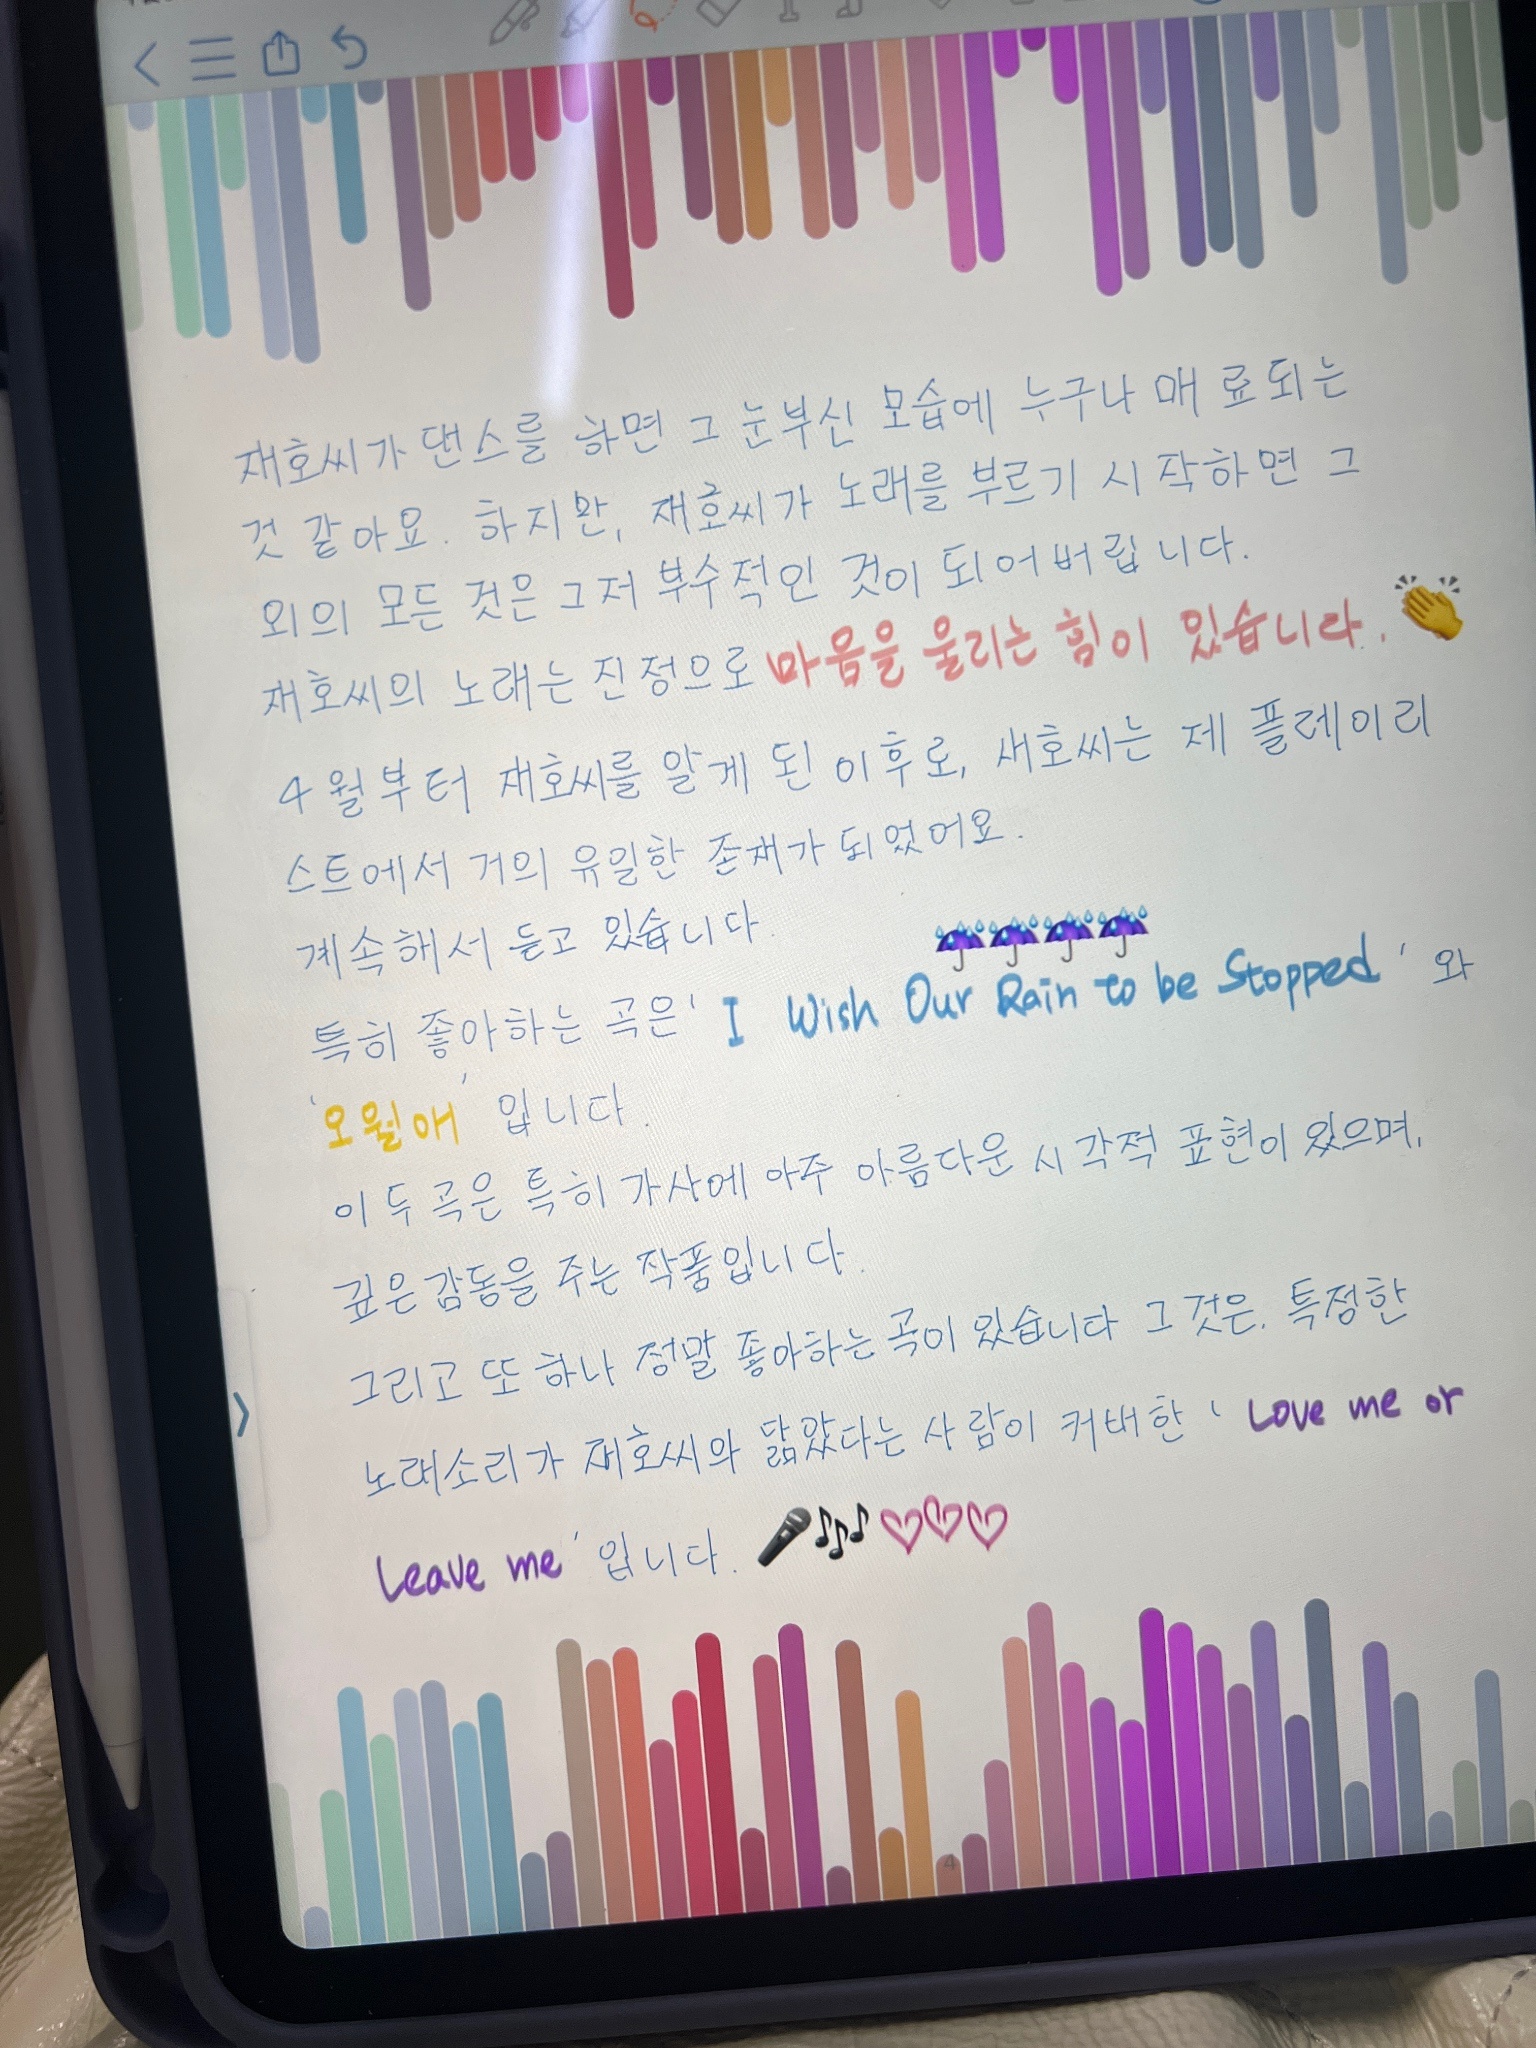 재호씨가 댄스를 하면 그 눈부신 모습에 누구나 매료되는
것 같아요. 하지만, 재호씨가 노래를 부르기 시작하면 그
외의 모든 것은 그저 부수적인 것이 되어버립니다.
재호씨의 노래는 진정으로 마음을 울리는 힘이 있습니다. 👏
4월부터 재호씨를 알게 된 이후로, 새호씨는 제 플레이리
스트에서 거의 유일한 존재가 되었어요.
계속해서 듣고 있습니다.
☔☔☔☔
특히 좋아하는 곡은 'I Wish Our Rain to be Stopped' 와
'오월애' 입니다.
이 두 곡은 특히 가사에 아주 아름다운 시각적 표현이 있으며,
깊은 감동을 주는 작품입니다.
그리고 또 하나 정말 좋아하는 곡이 있습니다 그것은. 특정한
노래소리가 재호씨와 닮았다는 사람이 커버한 ' Love me or
Leave me' 입니다. 🎤🎶♡♡♡
4